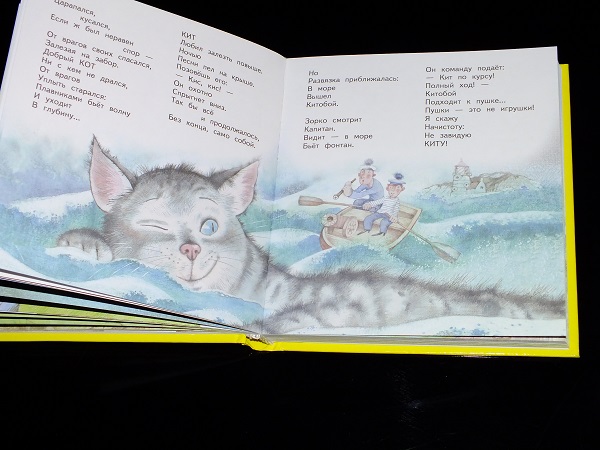 Царапался,
кусался,
Если ж был неравен
спор —
От врагов своих спасался,
Залезая на забор.
Добрый КОТ
Ни с кем не дрался,
От врагов
Уплыть старался:
Плавниками бьёт волну
И уходит
В глубину...
КИТ
Любил залезть повыше.
Ночью
Песни пел на крыше.
Позовёшь его:
— Кис, кис! —
Он охотно
Спрыгнет вниз.
Так бы всё
и продолжалось,
Без конца, само собой,
Но
Развязка приближалась:
В море
Вышел
Китобой.
Зорко смотрит
Капитан.
Видит — в море
Бьёт фонтан.
Он команду подаёт:
— Кит по курсу!
Полный ход! —
Китобой
Подходит к пушке...
Пушки — это не игрушки!
Я скажу
Начистоту:
Не завидую
КИТУ!